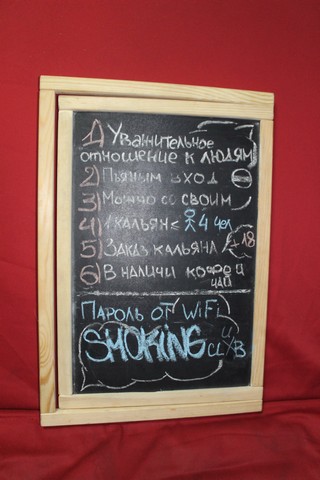 1) Уважительное
отношение к людям
2) Пьяным вход
3) Можно со своим
4) 1 кальян ≤ 4 чел
5) Заказ кальяна +18
6) В наличи кофе и
чай
Пароль от WiFi
SMOKING